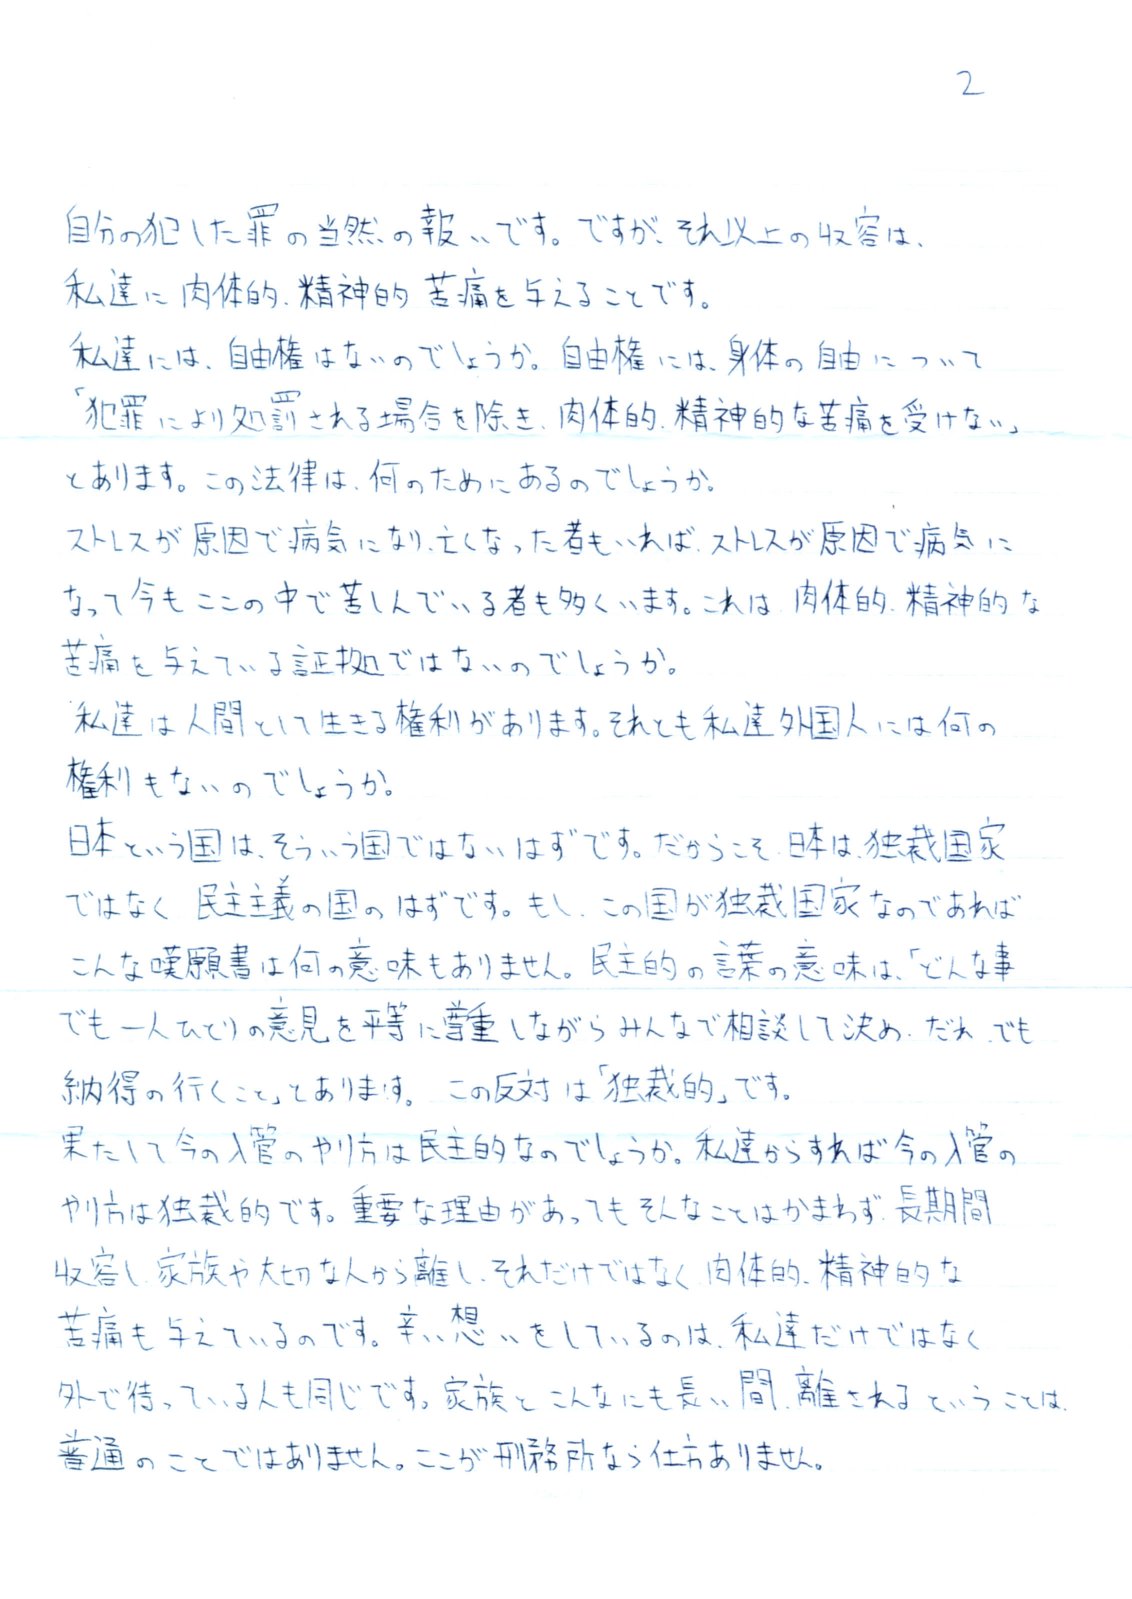 2
自分の犯した罪の当然の報いです。ですが、それ以上の収容は、
私達に肉体的、精神的苦痛を与えることです。
私達には、自由権はないのでしょうか。自由権には、身体の自由について
「犯罪により処罰される場合を除き、肉体的、精神的な苦痛を受けない」
とあります。この法律は、何のためにあるのでしょうか。
ストレスが原因で病気になり、亡くなった者もいれば、ストレスが原因で病気に
なって今もここの中で苦しんでいる者も多くいます。これは、肉体的、精神的な
苦痛を与えている証拠ではないのでしょうか。
私達は人間として生きる権利があります。それとも私達外国人には何の
権利もないのでしょうか。
日本という国は、そういう国ではないはずです。だからこそ、日本は、独裁国家
ではなく民主主義の国のはずです。もし、この国が独裁国家なのであれば
こんな嘆願書は何の意味もありません。民主的の言葉の意味は、「どんな事
でも一人ひとりの意見を平等に尊重しながらみんなで相談して決め、だれでも
納得の行くこと」とあります。この反対は「独裁的」です。
果たして今の入管のやり方は民主的なのでしょうか。私達からすれば今の入管の
やり方は独裁的です。重要な理由があってもそんなことはかまわず、長期間
収容し、家族や大切な人から離し、それだけではなく、肉体的、精神的な
苦痛も与えているのです。辛い想いをしているのは、私達だけではなく
外で待っている人も同じです。家族とこんなにも長い間、離されるということは、
普通のことではありません。ここが刑務所なら仕方ありません。